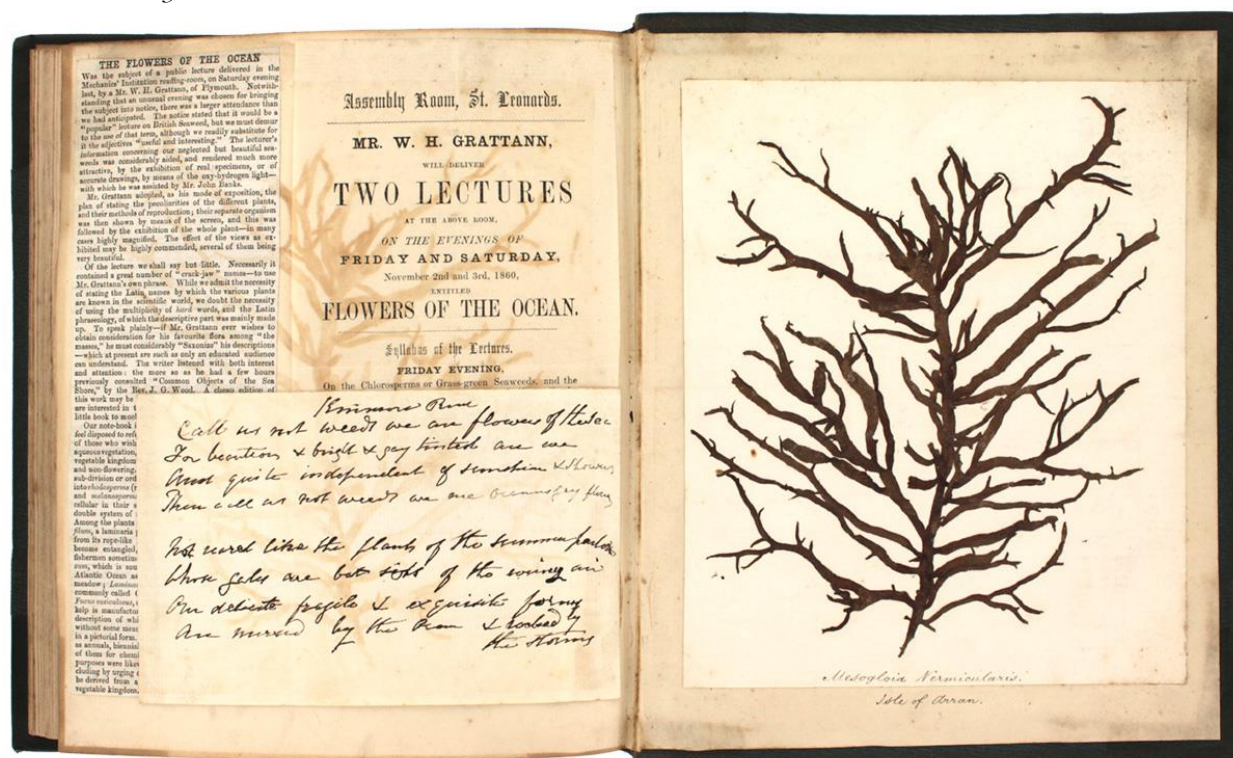 THE FLOWERS OF THE OCEAN
Was the subject of a public lecture delivered in the
Mechanics' Institution reading-room, on Saturday evening
last, by a Mr. W. H. Grattann, of Plymouth. Notwith-
standing that an unusual evening was chosen for bringing
the subject into notice, there was a larger attendance than
we had anticipated. The notice stated that it would be a
"popular" lecture on British Seaweed, but we must demur
to the use of that term, although we readily substitute for
it the adjectives "useful and interesting." The lecturer's
information concerning our neglected but beautiful sea-
weeds was considerably aided, and rendered much more
attractive, by the exhibition of real specimens, or of
accurate drawings, by means of the oxy-hydrogen light—
with which he was assisted by Mr. John Banks.
Mr. Grattann adopted, as his mode of exposition, the
plan of stating the peculiarities of the different plants,
and their methods of reproduction; their separate organism
was then shown by means of the screen, and this was
followed by the exhibition of the whole plant—in many
cases highly magnified. The effect of the views as ex-
hibited may be highly commended, several of them being
very beautiful.
Of the lecture we shall say but little. Necessarily it
contained a great number of "crack-jaw" names—to use
Mr. Grattann's own phrase. While we admit the necessity
of stating the Latin names by which the various plants
are known in the scientific world, we doubt the necessity
of using the multiplicity of hard words, and the Latin
phraseology, of which the descriptive part was mainly made
up. To speak plainly—if Mr. Grattann ever wishes to
obtain consideration for his favourite flora among "the
masses," he must considerably "Saxonize" his descriptions
—which at present are such as only an educated audience
can understand. The writer listened with both interest
and attention: the more so as he had a few hours
previously consulted "Common Objects of the Sea
Shore," by the Rev. J. G. Wood. A cheap edition of
this work may be
are interested in
little book to
Our note-book
feel disposed to
of those who wish
aqueous vegetation,
vegetable kingdom
and non-flowering.
sub-division or
into rhodosperms
and melanosperms
cellular in their
double system of
Among the plants
filum, a laminaria
from its rope-like
become entangled,
fishermen
which is
Atlantic Ocean as
meadow;
commonly called
Fucus
kelp is
description of
without some
in a pictorial form.
as annuals,
of them for
purposes were
cluding by urging
be derived from a
vegetable kingdom.
Assembly Room, St. Leonards.
MR. W. H. GRATTANN,
WILL DELIVER
TWO LECTURES
AT THE ABOVE ROOM,
ON THE EVENINGS OF
FRIDAY AND SATURDAY,
November 2nd and 3rd, 1860,
ENTITLED
FLOWERS OF THE OCEAN.
Syllabus of the Lectures.
FRIDAY EVENING,
On the Chlorosperms or Grass-green Seaweeds, and the
Call us not weeds we are flowers of the sea
For beauteous & bright & gay tinted are we
And quite independent of sunshine & showers
Then call us not weeds we are flowers
Not nursed like the plants of the summer
Whose gales are but of the air
Our delicate fragile & exquisite forms
Are nursed by the & rocked by
the storms
Mesogloia Vermicularis.
Isle of Arran.